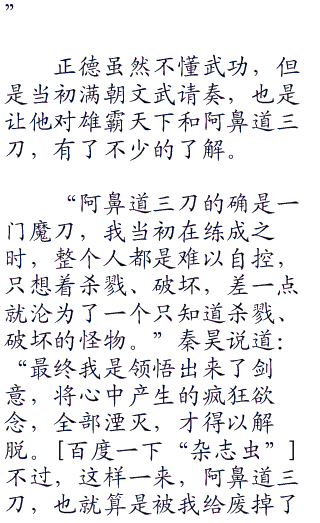 ”
正德虽然不懂武功，但
是当初满朝文武请奏，也是
让他对雄霸天下和阿鼻道三
刀，有了不少的了解。
“阿鼻道三刀的确是一
门魔刀，我当初在练成之
时，整个人都是难以自控，
只想着杀戮、破坏，差一点
就沦为了一个只知道杀戮、
破坏的怪物。”秦昊说道：
“最终我是领悟出来了剑
意，将心中产生的疯狂欲
念，全部湮灭，才得以解
脱。[百度一下“杂志虫”]
不过，这样一来，阿鼻道三
刀，也就算是被我给废掉了